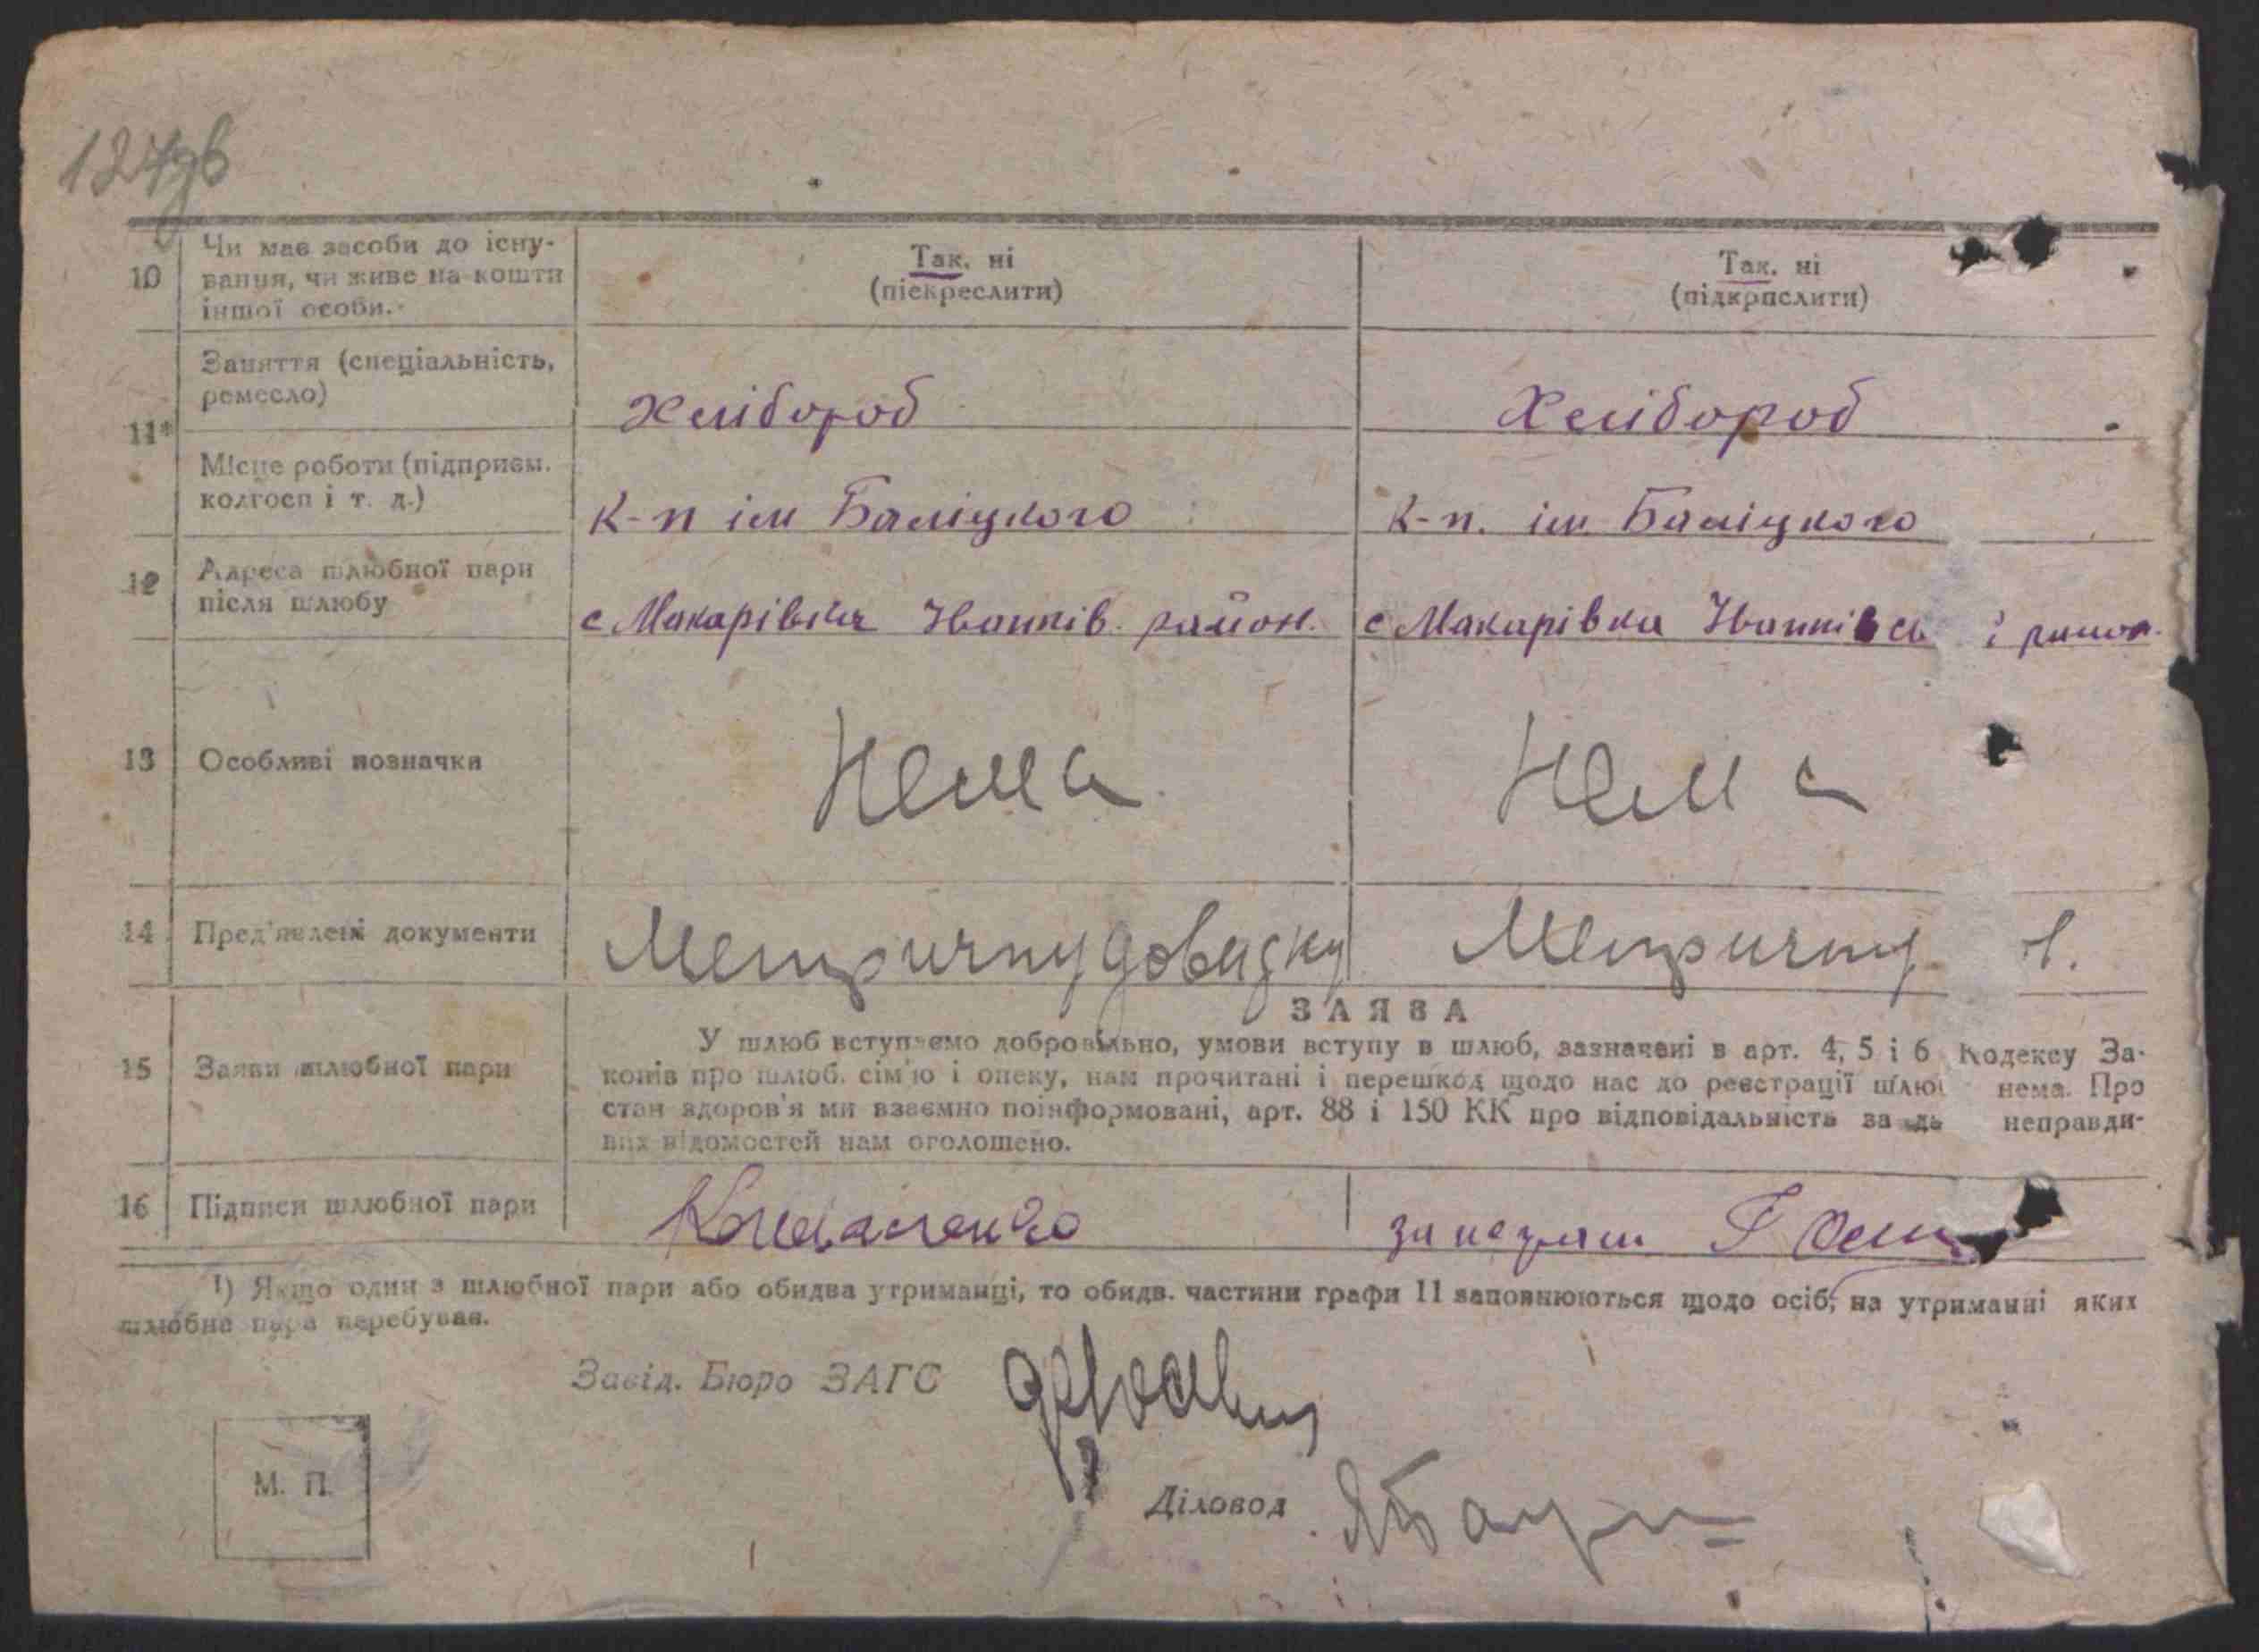 124зв
10 Чи має засоби до існу-
вання, чи живе на кошти
іншої особи.
Так. ні
(піскреслити)
Так. ні
(підкрпслити)
11* Заняття (спеціальність,
ремесло)
Хлібороб
Хлібороб
Місце роботи (підприєм.
колгосп і т. д.)
к-п ім Баліцкого
к-п. ім Баліцкого
12 Адреса шлюбної пари
після шлюбу
с Макарівка Іванків. район.
с Макарівка Іванківсь і район.
13 Особливі позначки
Нема
Нема
14 Пред'явлені документи
Метричну довидку
Метричну
ЗАЯВА
15 Заяви шлюбної пари
У шлюб вступаємо добровільно, умови вступу в шлюб, зазначені в арт. 4, 5 і 6 Кодексу За-
конів про шлюб. сім'ю і опеку, нам прочитані і перешкод щодо нас до реєстрації шлю нема. Про
стан здоров'я ми взаємно поінформовані, арт. 88 і 150 КК про відповідальність за да неправди-
вих відомостей нам оголошено.
16 Підписи шлюбної пари
за неграм
1) Якщо один з шлюбної пари або обидва утриманці, то обидв. частини графи 11 заповнюються щодо осіб, на утриманні яких
шлюбна пара перебуває.
Завід. Бюро ЗАГС
М. П.
Діловод